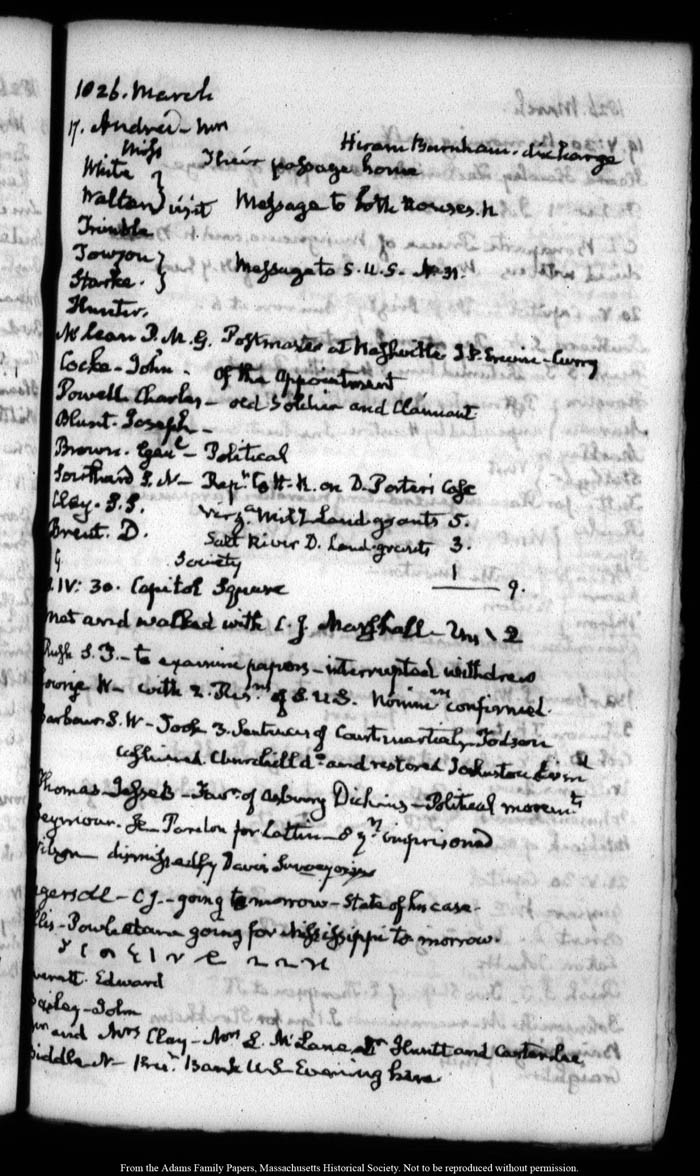 1826. March
17. Andrei - Mrs Hiram Burnham. discharge
Miss Their passage home
White }
Walton } visit Message to both Houses. N
Trimble
Towson } Message to S.U.S. N. 31.
Starke. }
Hunter.
McLean P.M.G. Postmaster at Nashville J.P. Erwin - Curry
Cocke - John. of the Appointment
Powell Charles - old Soldier and Claimant
Blunt. Joseph -
Brown. Genl - Political
Southard S. N - Rep. to H.R. on D. Porter's Case
Clay. S.S. Virga Milt Land grants 5.
Brent. D. Salt River D. Land grants 3.
Society
IV: 30. Capitol Square 1 9.
met and walked with C. J. Marshall -
Rush S.T. - to examine papers - interrupted withdrew
W - with 2. Resns of S.U.S. Nominns confirmed.
Barbour S.W - Took 3. Sentences of Court martial -
cashiered Churchill do and restored Johnston
Thomas - Jesse B - of Asbury Dickins - Political movemts
Seymour. Pardon for Lattin - 8 imprisoned
dismissed by Davis Surveyor
Ingersoll - C.J. - going tomorrow - State of his case.
Ellis - Powhatan going for Mississippi tomorrow.
Everett. Edward
John
and Mrs Clay - Mrs L. McLane, Dr Huntt and Custis Lee
Biddle N - Bank U.S. Evening here.
From the Adams Family Papers, Massachusetts Historical Society. Not to be reproduced without permission.